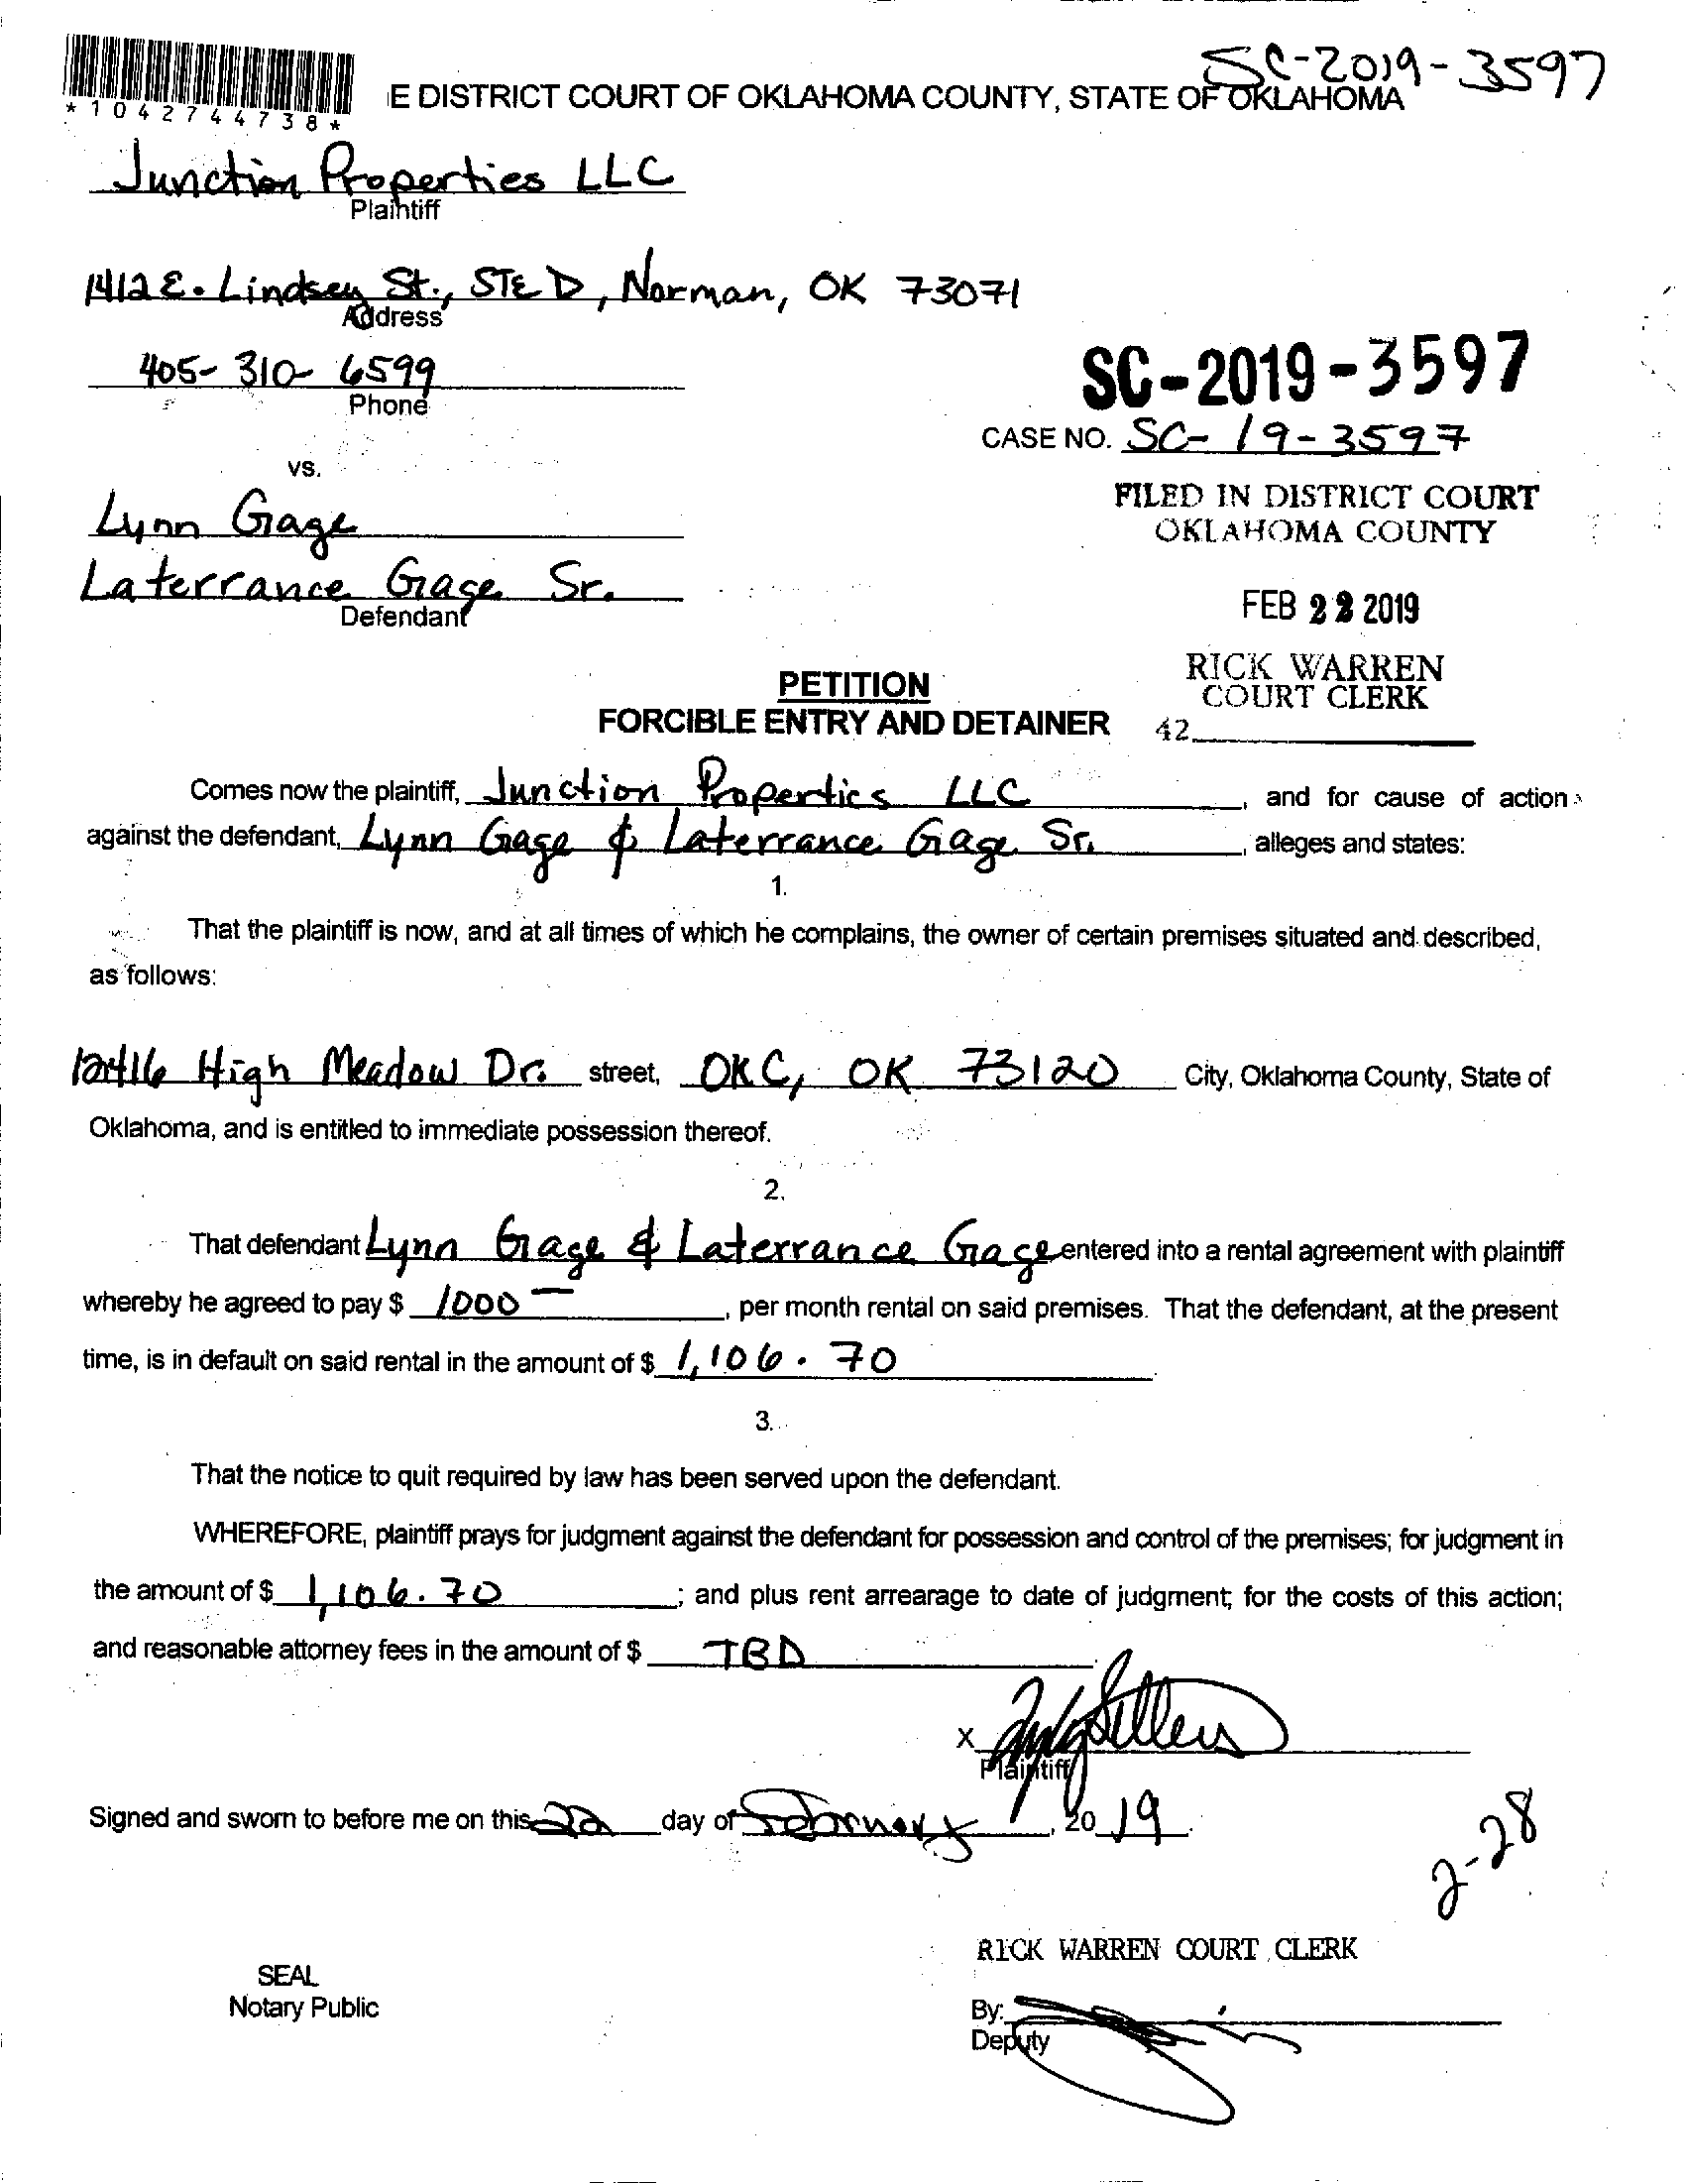 SC-2019-3597
*1042744738*
E DISTRICT COURT OF OKLAHOMA COUNTY, STATE OF OKLAHOMA
Junction Properties LLC
Plaintiff
1412 E. Lindsey St., STE D, Norman, OK 73071
Address
405-310-6599
Phone
SC-2019-3597
CASE NO. SC-19-3597
vs.
FILED IN DISTRICT COURT
OKLAHOMA COUNTY
Lynn Gage
Laterrance Gage Sr.
Defendant
FEB 22 2019
RICK WARREN
COURT CLERK
42
PETITION
FORCIBLE ENTRY AND DETAINER
Comes now the plaintiff, Junction Properties LLC, and for cause of action
against the defendant, Lynn Gage & Laterrance Gage Sr., alleges and states:
1.
That the plaintiff is now, and at all times of which he complains, the owner of certain premises situated and described,
as follows:
12416 High Meadow Dr. street, OKC, OK 73120 City, Oklahoma County, State of
Oklahoma, and is entitled to immediate possession thereof.
2.
That defendant Lynn Gage & Laterrance Gage entered into a rental agreement with plaintiff
whereby he agreed to pay $ 1000 —, per month rental on said premises. That the defendant, at the present
time, is in default on said rental in the amount of $ 1,106.70.
3.
That the notice to quit required by law has been served upon the defendant.
WHEREFORE, plaintiff prays for judgment against the defendant for possession and control of the premises; for judgment in
the amount of $ 1,106.70; and plus rent arrearage to date of judgment; for the costs of this action;
and reasonable attorney fees in the amount of $ TBD.
X
Plaintiff
Signed and sworn to before me on this 22 day of February, 2019.
2-28
RICK WARREN COURT CLERK
SEAL
Notary Public
By:
Deputy